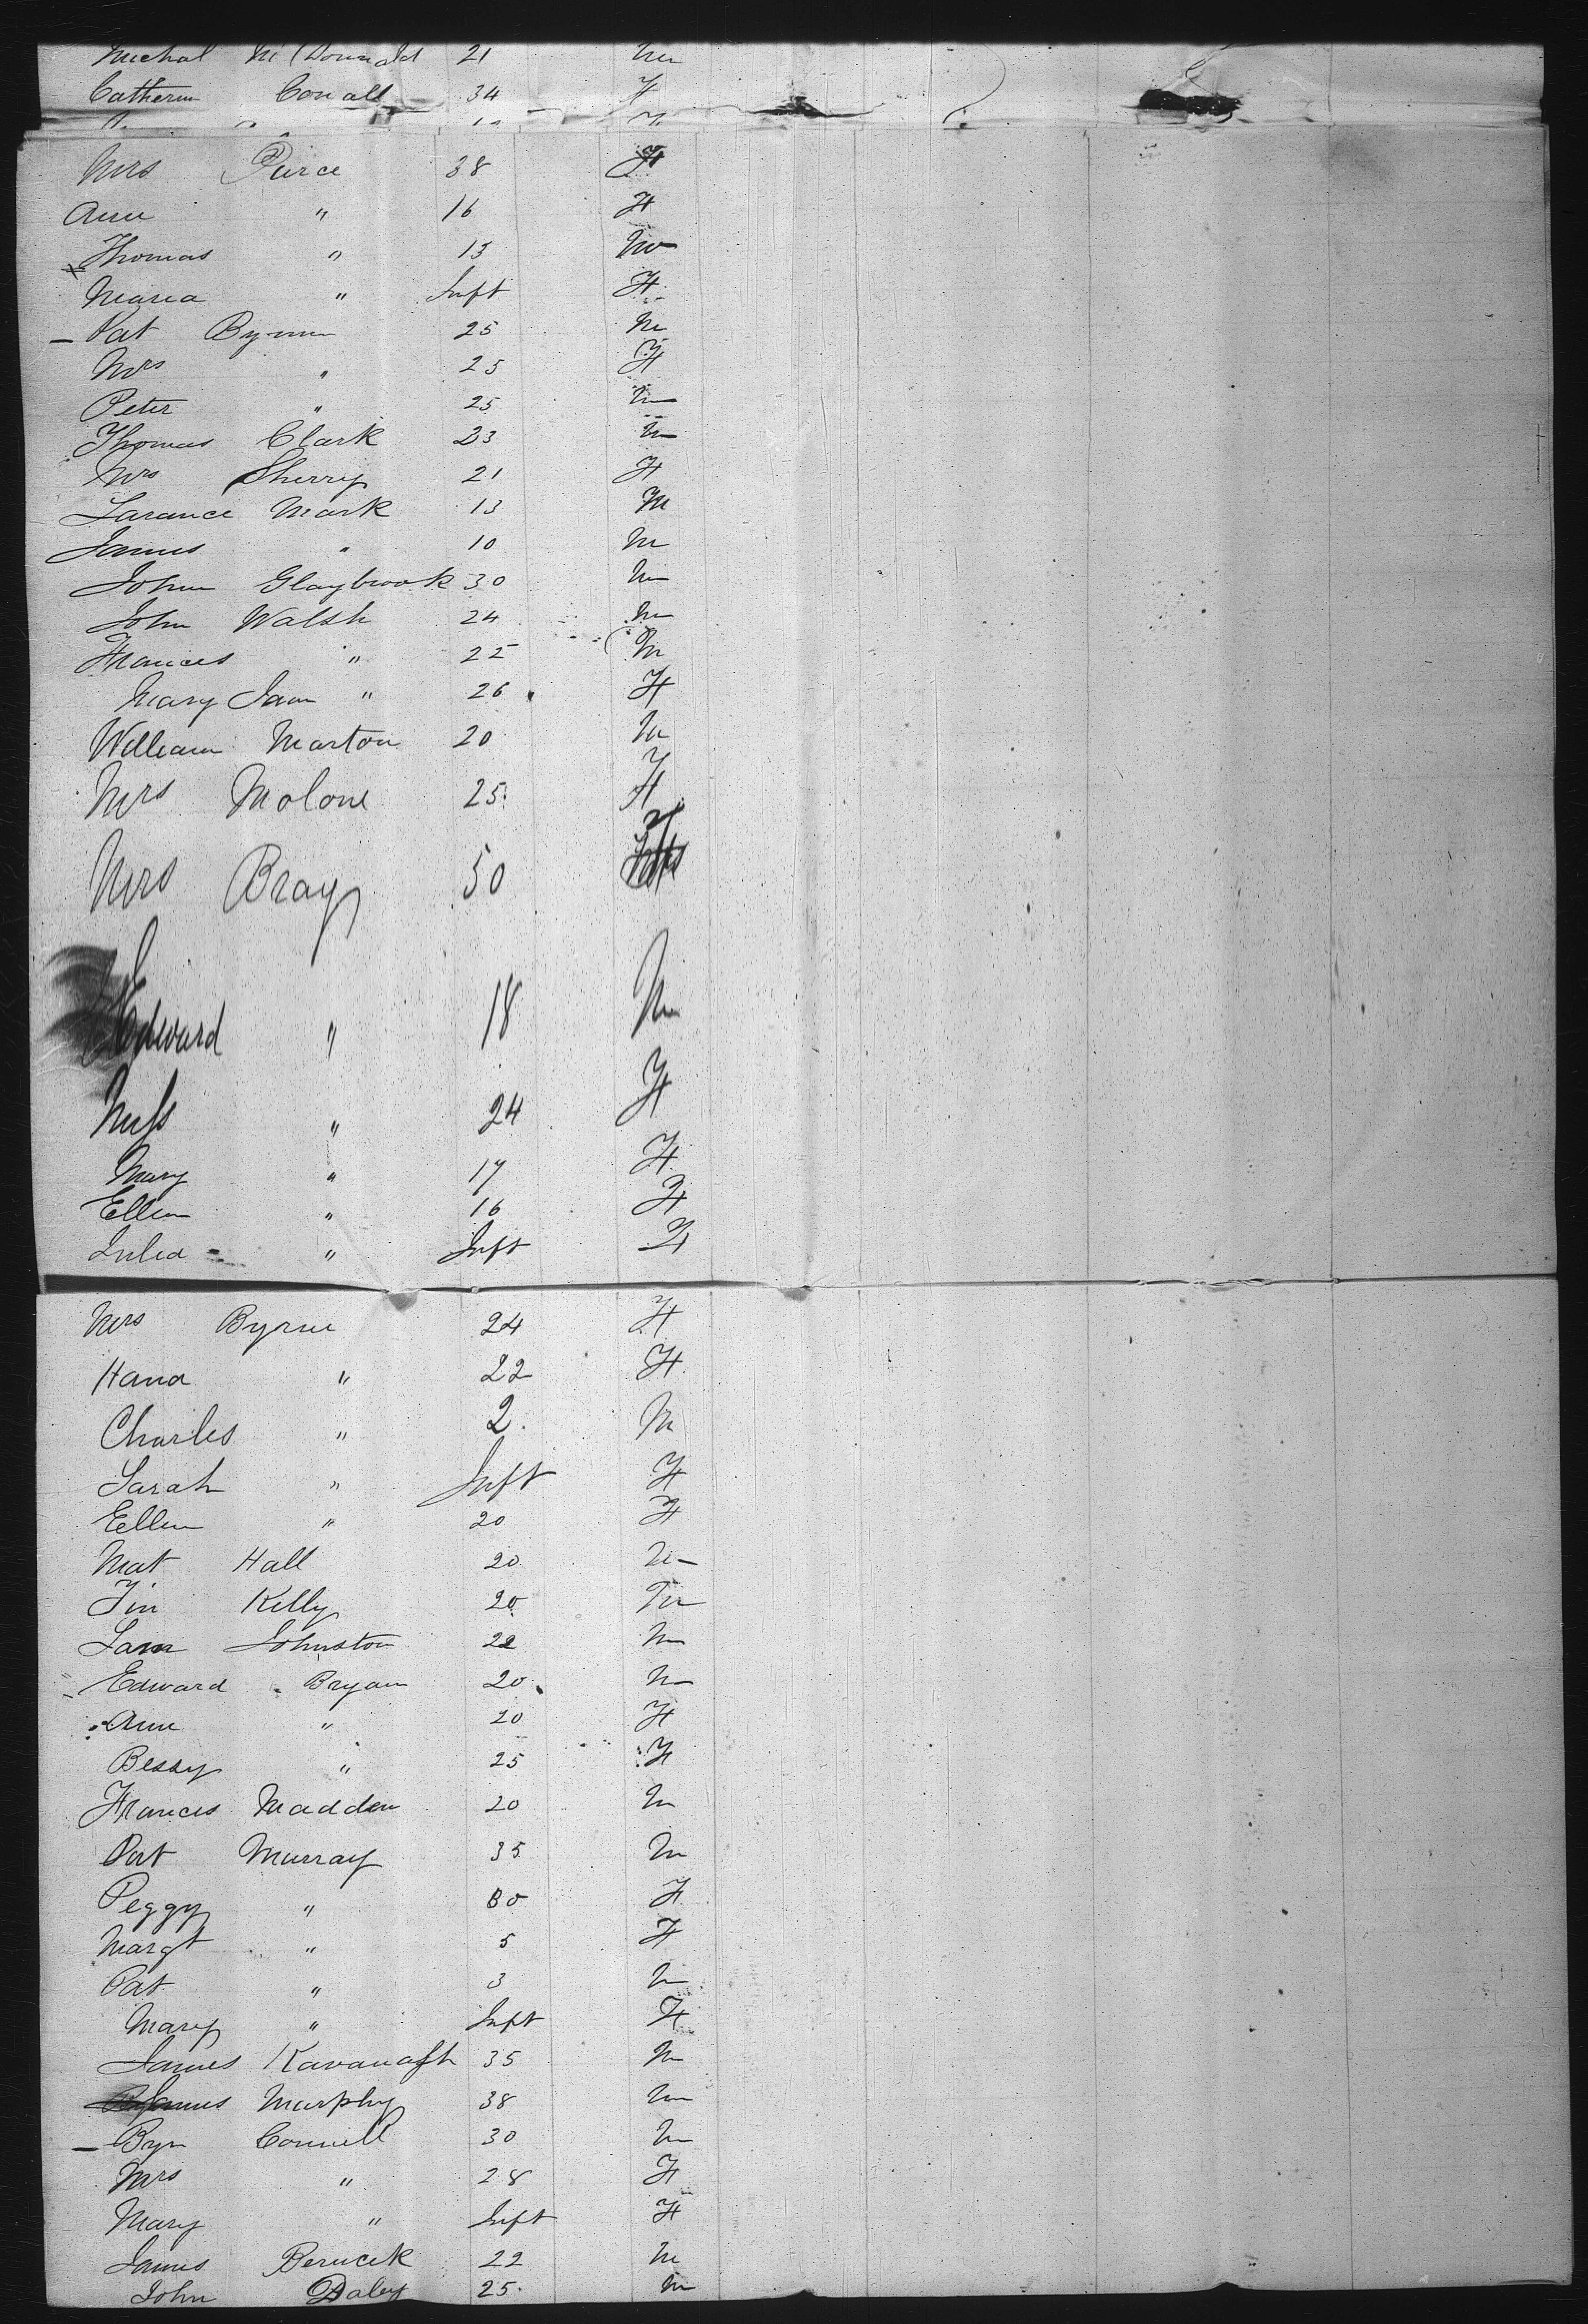 Michal McDonnald 21 M
Catherin Conall 34 F
Mrs Pirce 38 F
Ann " 16 F
Thomas " 13 M
Maria " Inft F
Pat Byrnn 25 M
Mrs " 25 F
Peter " 25 M
Thomas Clark 23 M
Mrs Sherry 21 F
Larance Mark 13 M
James " 10 M
John Glaybrook 30 M
John Walsh 24 M
Frances " 22 M
Mary Jam " 26 F
William Marton 20 M
Mrs Molone 25 F
Mrs Bray 50 F
Edward " 18 M
Miss " 24 F
Mary " 17 F
Ellen " 16 F
Julia " Inft F
Mrs Byrne 24 F
Hana " 22 F
Charles " 2 M
Sarah " Inft F
Ellen " 20 F
Mat Hall 20 M
Tim Kelly 20 M
Sam Johnston 22 M
Edward Bryan 20 M
Ann " 20 F
Bessy " 25 F
Frances Madden 20 M
Pat Murray 35 M
Peggy " 30 F
Margt " 5 F
Pat " 3 M
Mary " Inft F
James Kavanagh 35 M
James Murphy 38 M
Byn Connell 30 M
Mrs " 28 F
Mary " Inft F
James Berucek 22 M
John Daley 25 M